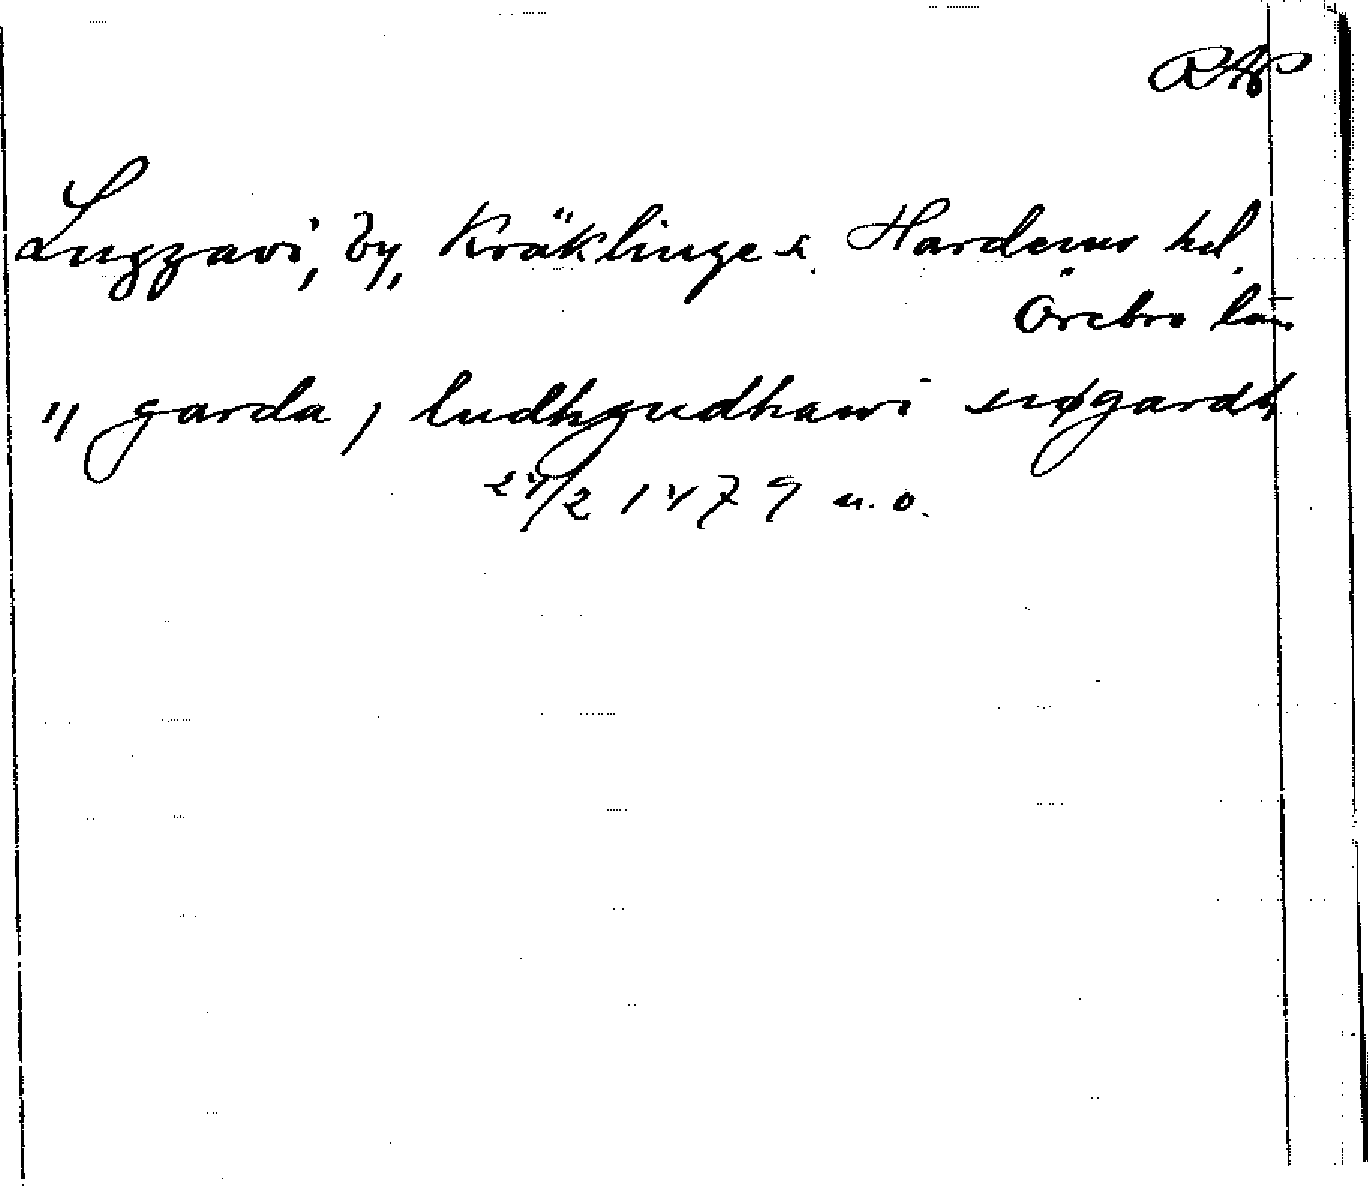 RAP
Luggavi, by, Kräklinge s. Hardemo hd.
Örebro län
" garda, ludhgudhawi siøgardh
24/2 1479 u. o.